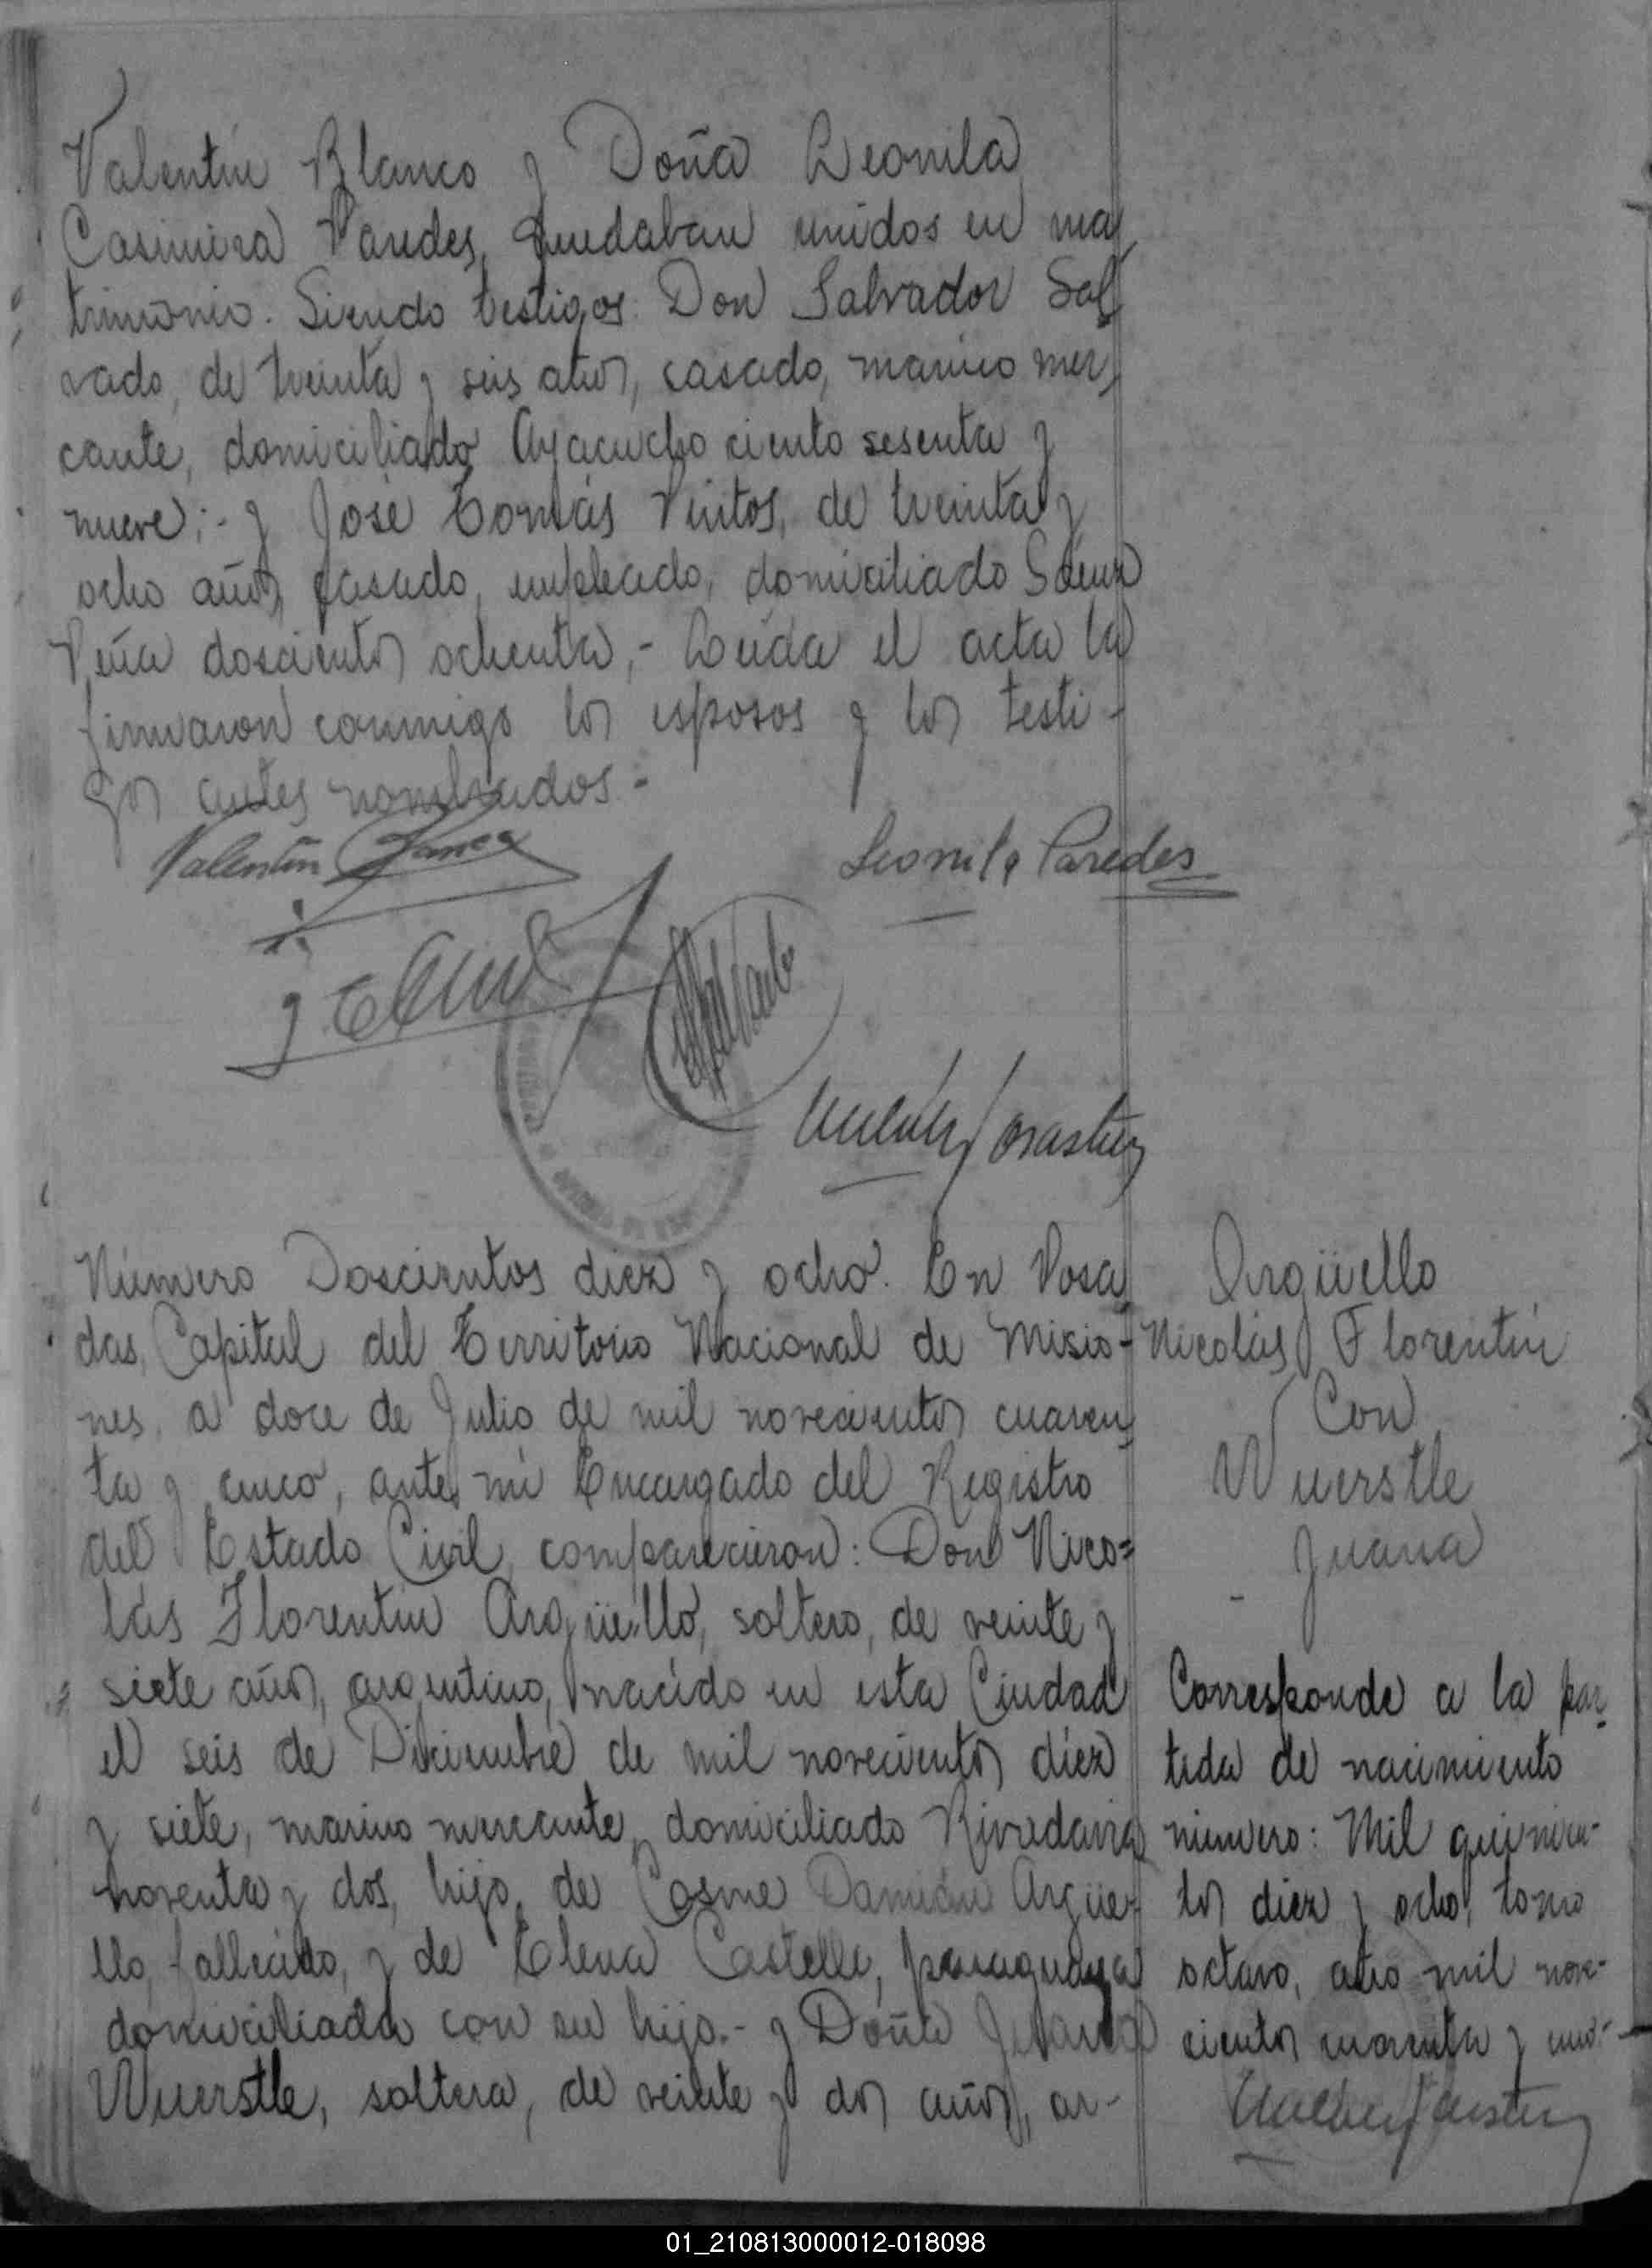 Valentín Blanco y Doña Leonila
Casimira Paredes, quedaban unidos en ma
trimonio. Siendo testigos: Don Salvador Sal
vado, de treinta y seis años, casado, marino mer
cante, domiciliado Ayacucho ciento sesenta y
nueve;- y José Tomás Pintos, de treinta y
ocho años, casado, empleado, domiciliado Sáenz
Peña doscientos ochenta,- Leída el acta la
firmaron conmigo los esposos y los testi-
gos antes nombrados.-
Valentín Blanco
Leonila Paredes
Número Doscientos diez y ocho. En Posa
das, Capital del Territorio Nacional de Misio-
nes, a doce de Julio de mil novecientos cuaren
ta y cinco, ante mí Encargado del Registro
del Estado Civil, comparecieron: Don Nico=
lás Florentín Argüello, soltero, de veinte y
siete años, argentino, nacido en esta Ciudad
el seis de Diciembre de mil novecientos diez
y siete, marino mercante, domiciliado Rivadavia
noventa y dos, hijo de Cosme Damián Argüe-
llo, fallecido, y de Elena Castelli, paraguaya
domiciliada con su hijo.- y Doña Juana
Wuerstle, soltera, de veinte y dos años, ar-
Argüello
Nicolás Florentín
Con
Wuerstle
Juana
Corresponde a la par
tida de nacimiento
número: Mil quinien-
tos diez y ocho, tomo
octavo, año mil nove-
cientos cuarenta y uno.-
01_210813000012-018098